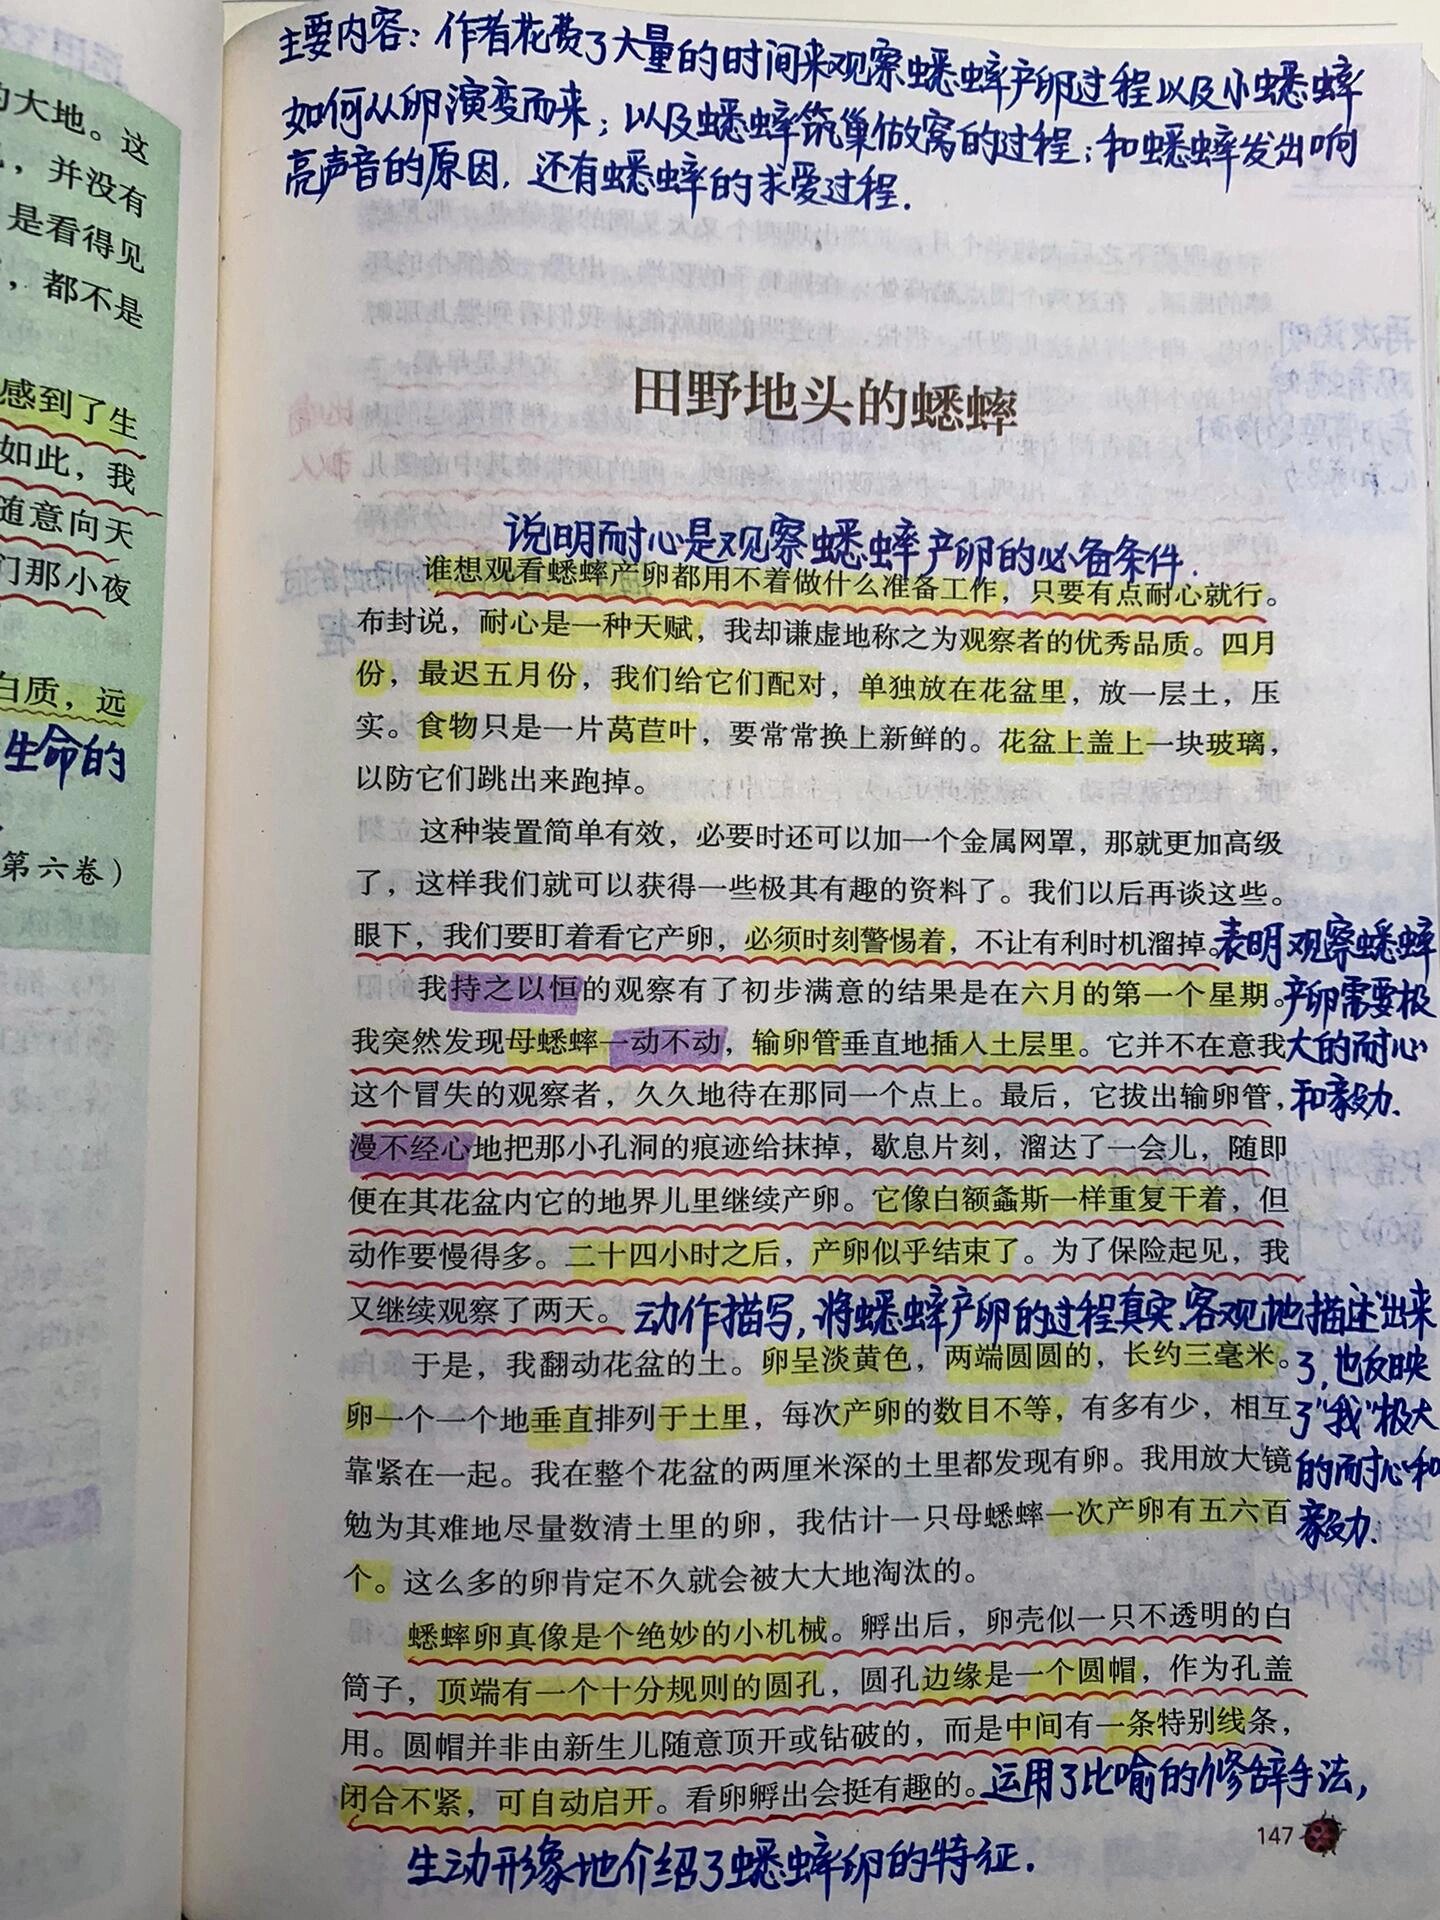 主要内容：作者花费了大量的时间来观察蟋蟀产卵过程以及小蟋蟀
如何从卵演变而来；以及蟋蟀筑巢做窝的过程；和蟋蟀发出响
亮声音的原因，还有蟋蟀的求爱过程．
的大地。这
，并没有
是看得见
，都不是
感到了生
如此，我
随意向天
门那小夜
白质，远
生命的
第六卷）
田野地头的蟋蟀
说明耐心是观察蟋蟀产卵的必备条件．
谁想观看蟋蟀产卵都用不着做什么准备工作，只要有点耐心就行。
布封说，耐心是一种天赋，我却谦虚地称之为观察者的优秀品质。四月
份，最迟五月份，我们给它们配对，单独放在花盆里，放一层土，压
实。食物只是一片莴苣叶，要常常换上新鲜的。花盆上盖上一块玻璃，
以防它们跳出来跑掉。
这种装置简单有效，必要时还可以加一个金属网罩，那就更加高级
了，这样我们就可以获得一些极其有趣的资料了。我们以后再谈这些。
眼下，我们要盯着看它产卵，必须时刻警惕着，不让有利时机溜掉。
表明观察蟋蟀
产卵需要极
大的耐心
和毅力．
我持之以恒的观察有了初步满意的结果是在六月的第一个星期。
我突然发现母蟋蟀一动不动，输卵管垂直地插入土层里。它并不在意我
这个冒失的观察者，久久地待在那同一个点上。最后，它拔出输卵管，
漫不经心地把那小孔洞的痕迹给抹掉，歇息片刻，溜达了一会儿，随即
便在其花盆内它的地界儿里继续产卵。它像白额螽斯一样重复干着，但
动作要慢得多。二十四小时之后，产卵似乎结束了。为了保险起见，我
又继续观察了两天。
动作描写，将蟋蟀产卵的过程真实．客观地描述出来
了，也反映
了“我”极大
的耐心和
毅力．
于是，我翻动花盆的土。卵呈淡黄色，两端圆圆的，长约三毫米。
卵一个一个地垂直排列于土里，每次产卵的数目不等，有多有少，相互
靠紧在一起。我在整个花盆的两厘米深的土里都发现有卵。我用放大镜
勉为其难地尽量数清土里的卵，我估计一只母蟋蟀一次产卵有五六百
个。这么多的卵肯定不久就会被大大地淘汰的。
蟋蟀卵真像是个绝妙的小机械。孵出后，卵壳似一只不透明的白
筒子，顶端有一个十分规则的圆孔，圆孔边缘是一个圆帽，作为孔盖
用。圆帽并非由新生儿随意顶开或钻破的，而是中间有一条特别线条，
闭合不紧，可自动启开。看卵孵出会挺有趣的。
运用了比喻的修辞手法，
生动形象地介绍了蟋蟀卵的特征．
147